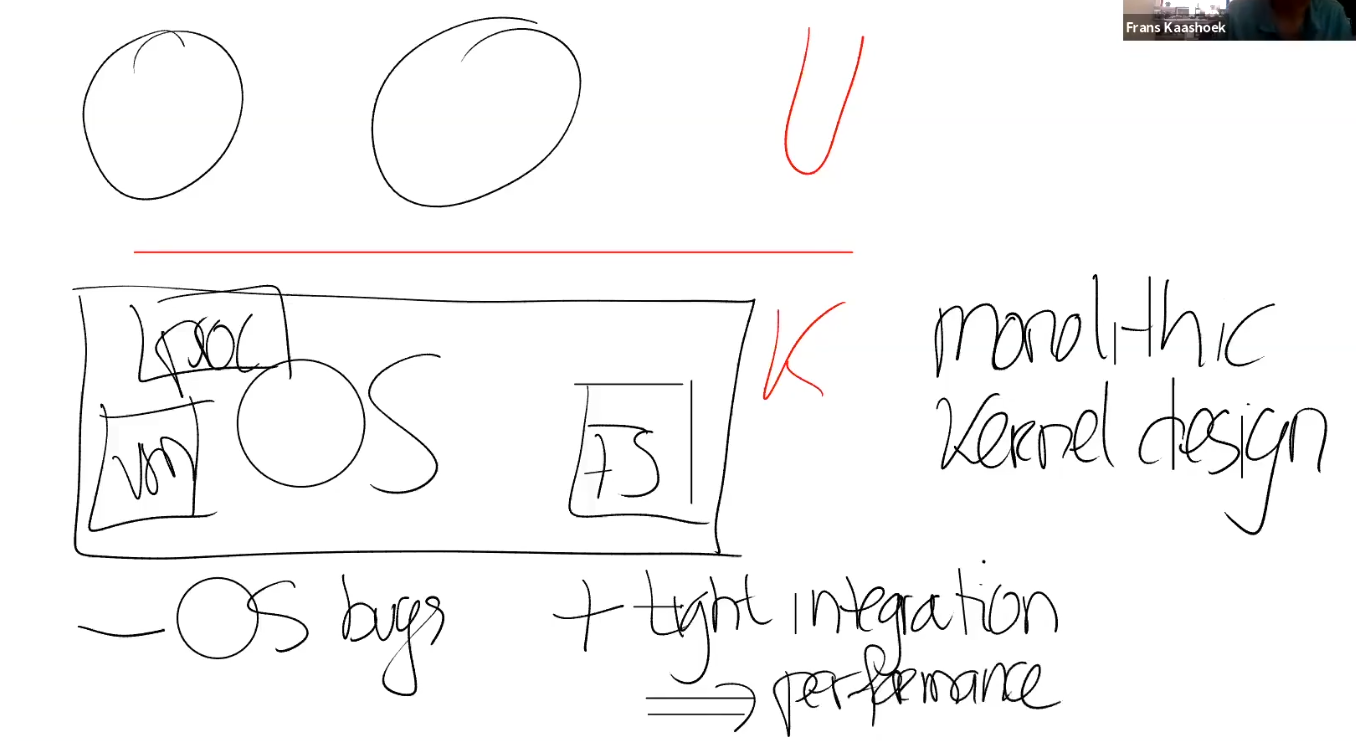 Frans Kaashoek
U
K
proc
OS
vm
FS
monolithic
kernel design
- OS bugs
+ tight integration
⟹ performance